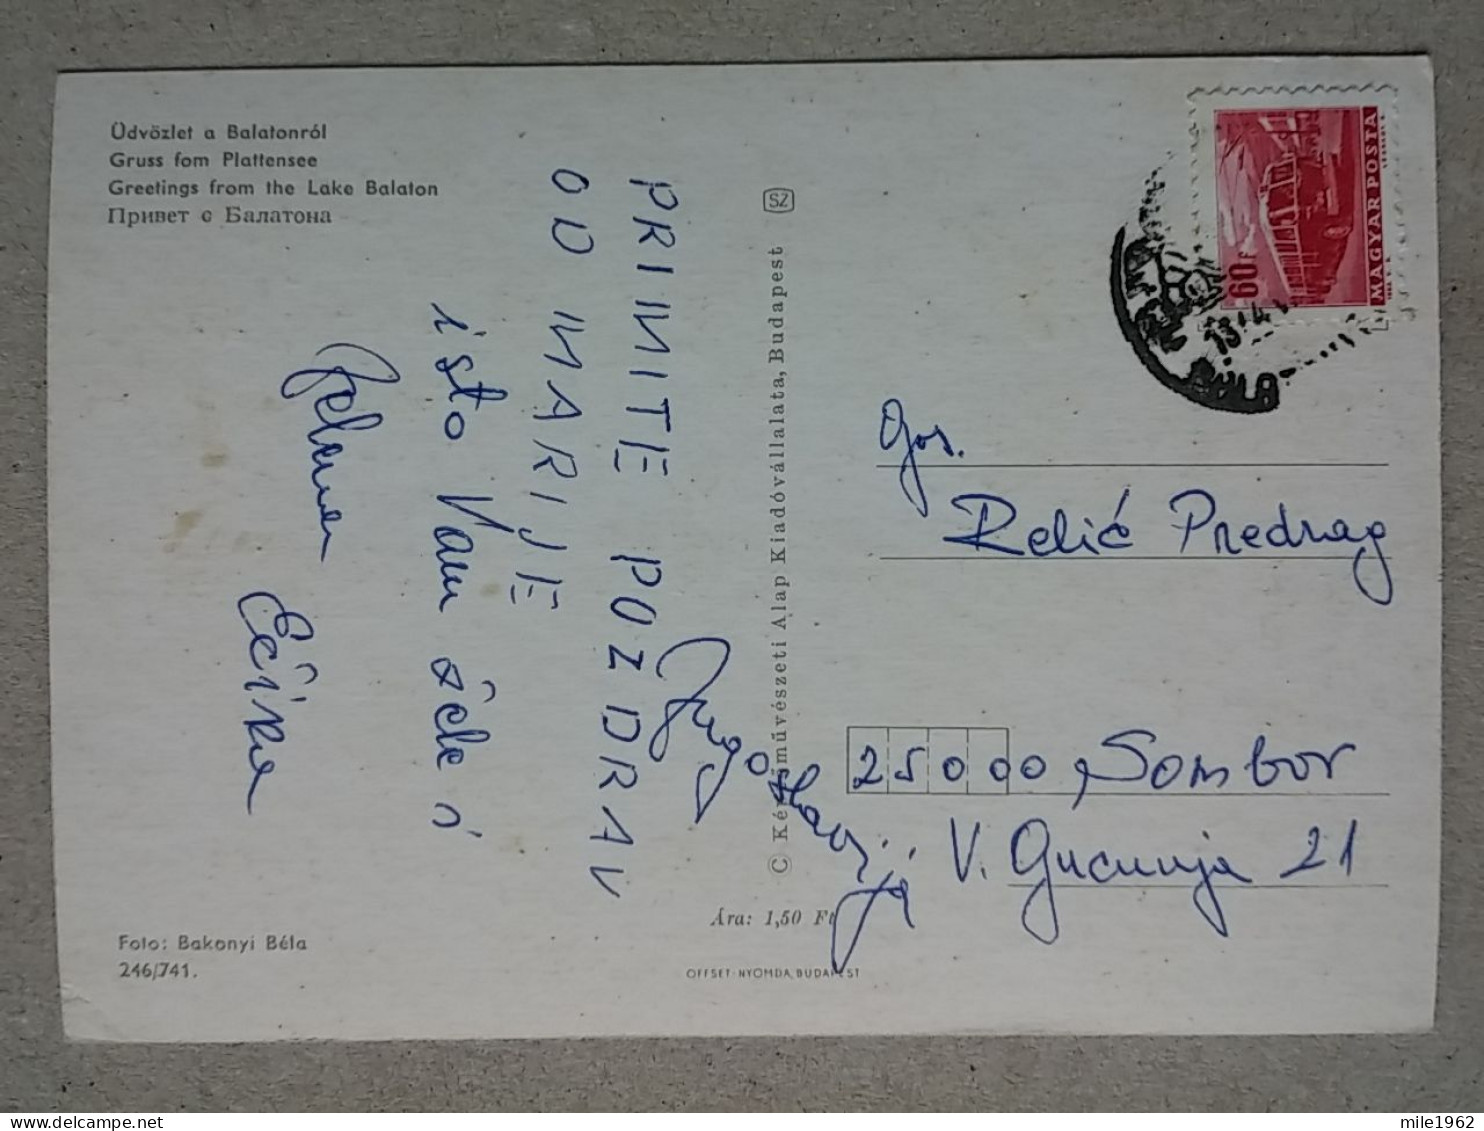 Üdvözlet a Balatonról
Gruss fom Plattensee
Greetings from the Lake Balaton
Привет с Балатона
PRIMITE POZDRAV
OD MARIJE
isto Vam žele i
Jelena
Jugoslavija
Foto: Bakonyi Béla
246/741.
SZ
© Képzőművészeti Alap Kiadóvállalata, Budapest
Ára: 1,50 Ft
OFFSET-NYOMDA, BUDAPEST
60f
MAGYAR POSTA
gos.
Relić Predrag
25000, Sombor
V. Gucunja 21
mile1962